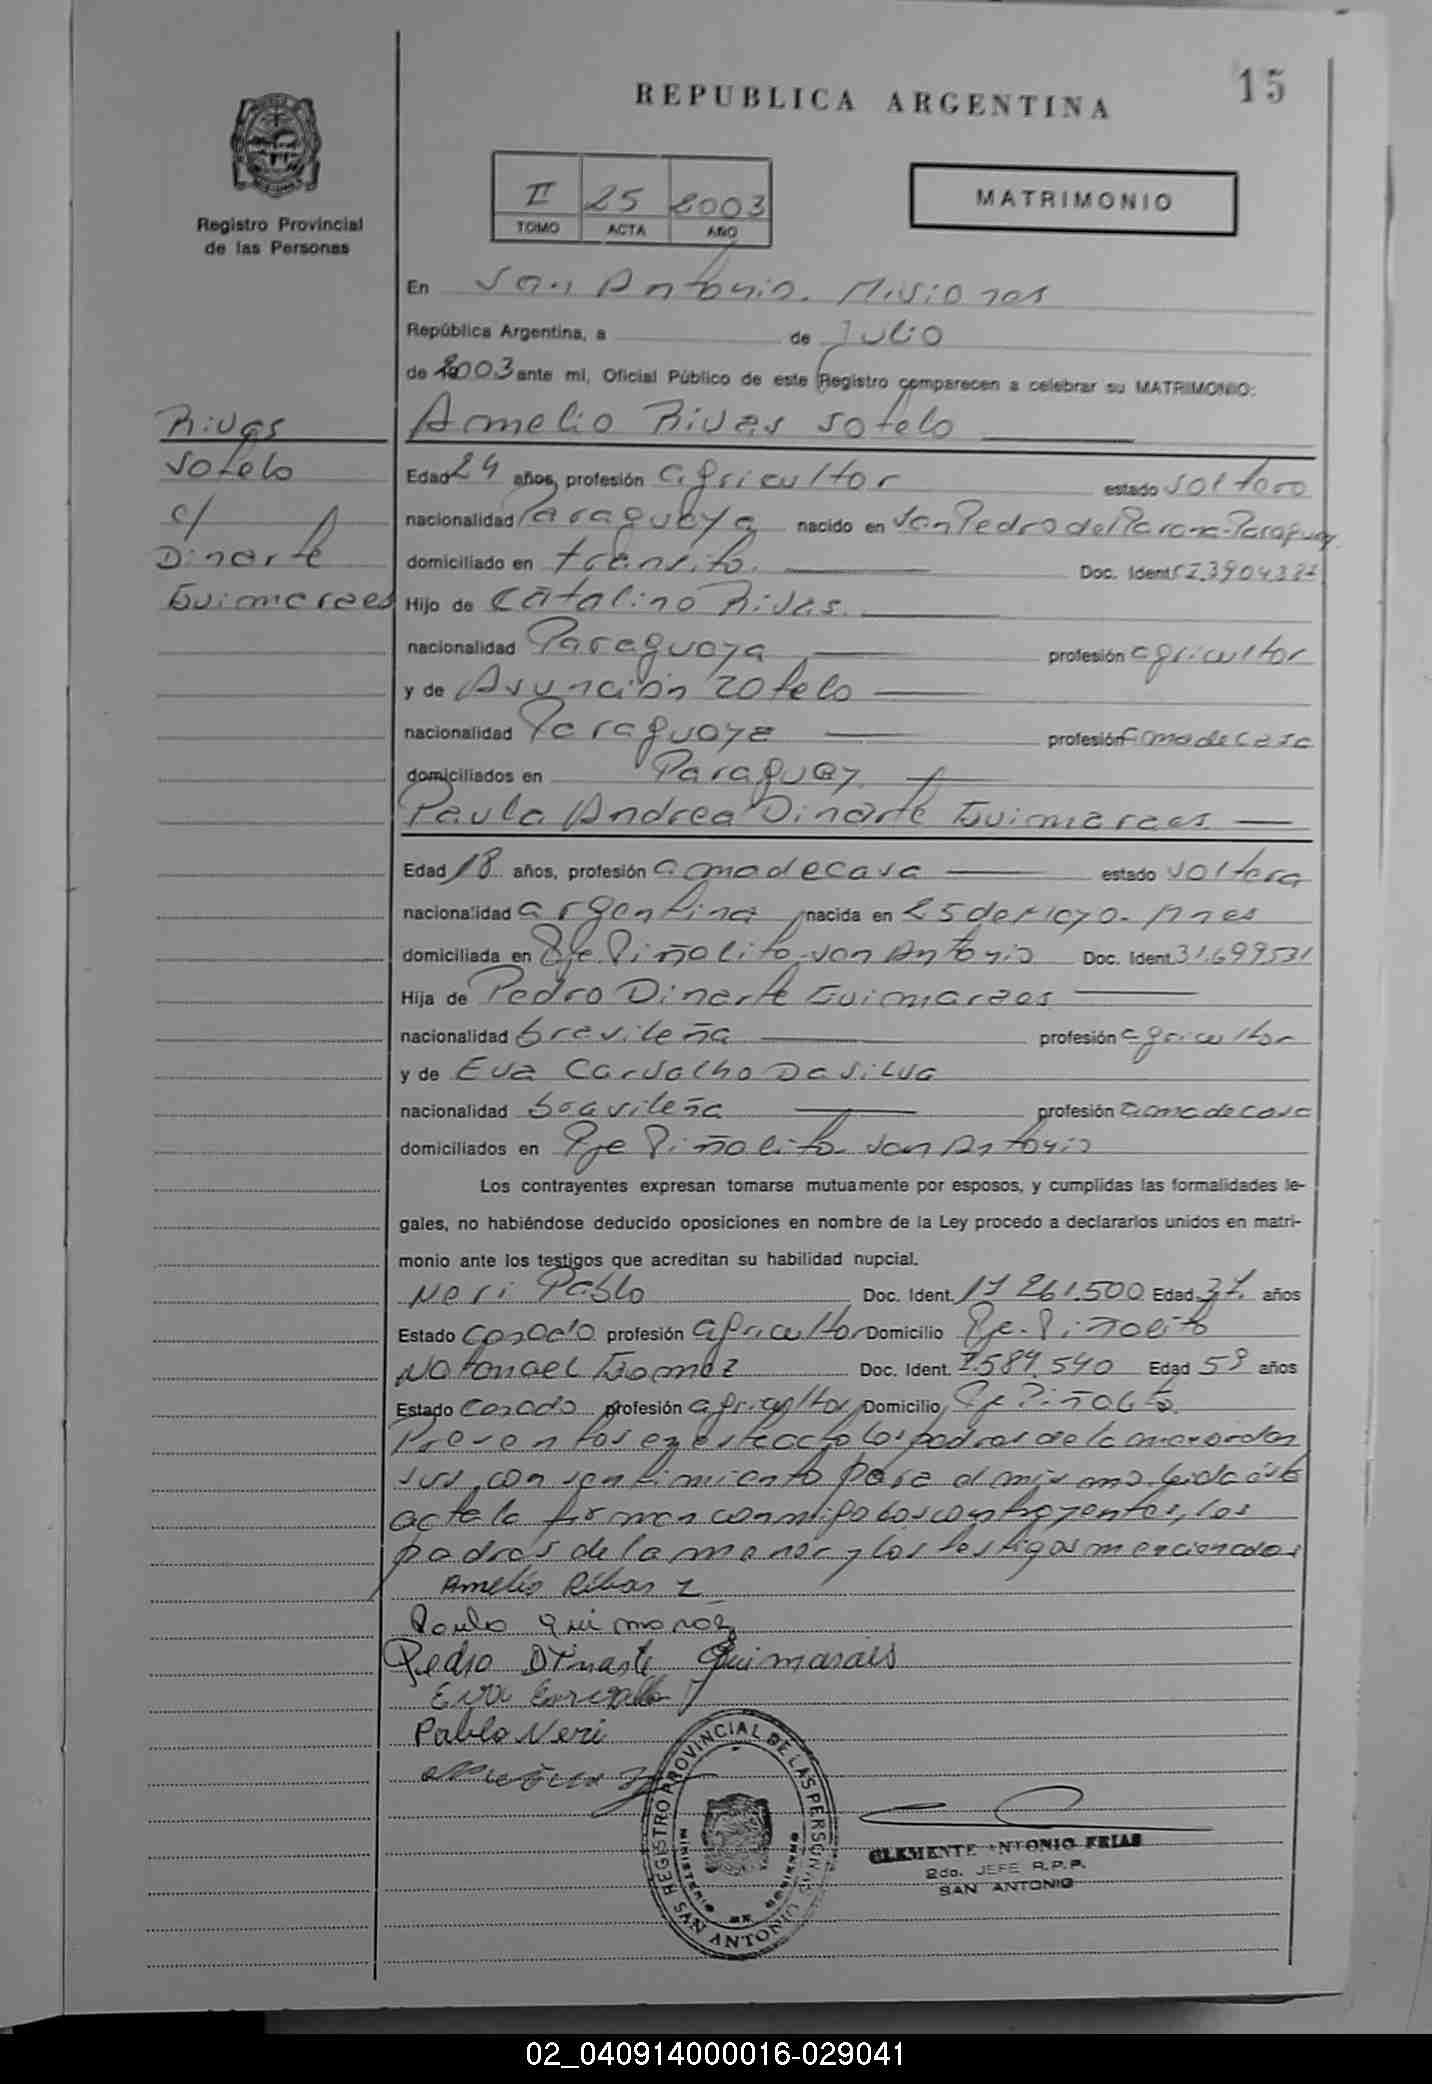 15
REPUBLICA ARGENTINA
Registro Provincial
de las Personas
II 25 2003
TOMO ACTA AÑO
MATRIMONIO
En San Antonio. Misiones
República Argentina, a de Julio
de 2003 ante mi, Oficial Público de este Registro comparecen a celebrar su MATRIMONIO:
Rivas
Sotelo
c/
Dinarte
Guimaraes
Amelio Rivas Sotelo
Edad 24 años, profesión agricultor estado soltero
nacionalidad Paraguaya nacido en San Pedro del Parana-Paraguay
domiciliado en transito. Doc. Ident.
Hijo de Catalino Rivas.
nacionalidad Paraguaya profesión agricultor
y de Asunción Zotelo
nacionalidad Paraguaya profesión ama de casa
domiciliados en Paraguay
Paula Andrea Dinarte Guimaraes
Edad 18 años, profesión ama de casa estado soltera
nacionalidad argentina nacida en 25 de Mayo. Mnes
domiciliada en Pje. Piñalito-San Antonio Doc. Ident. 31.699.531
Hija de Pedro Dinarte Guimaraes
nacionalidad brasileña profesión agricultor
y de Eva Carvalho Da Silva
nacionalidad brasileña profesión ama de casa
domiciliados en Pje Piñalito San Antonio
Los contrayentes expresan tomarse mutuamente por esposos, y cumplidas las formalidades le-
gales, no habiéndose deducido oposiciones en nombre de la Ley procedo a declararlos unidos en matri-
monio ante los testigos que acreditan su habilidad nupcial.
Neri Pablo Doc. Ident. 17 261.500 Edad 37. años
Estado casado profesión agricultor Domicilio Pje. Piñalito
Natanael Gomez Doc. Ident. 7.584.540 Edad 59 años
Estado casado profesión agricultor Domicilio Pje Piñalito.
Presentes en este acto los padres de la menor dan
sus consentimiento para el mismo leida ésta
acta la firman conmigo los contrayentes, los
padres de la menor y los testigos mencionados
Amelio Ribas Z
Paula Guimaraez
Pedro Dinarte Guimarais
Eva
Pablo Neri
REGISTRO PROVINCIAL DE LAS PERSONAS
MINISTERIO DE GOBIERNO
SAN ANTONIO
CLEMENTE ANTONIO FRIAS
2do. JEFE R.P.P.
SAN ANTONIO
02_040914000016-029041